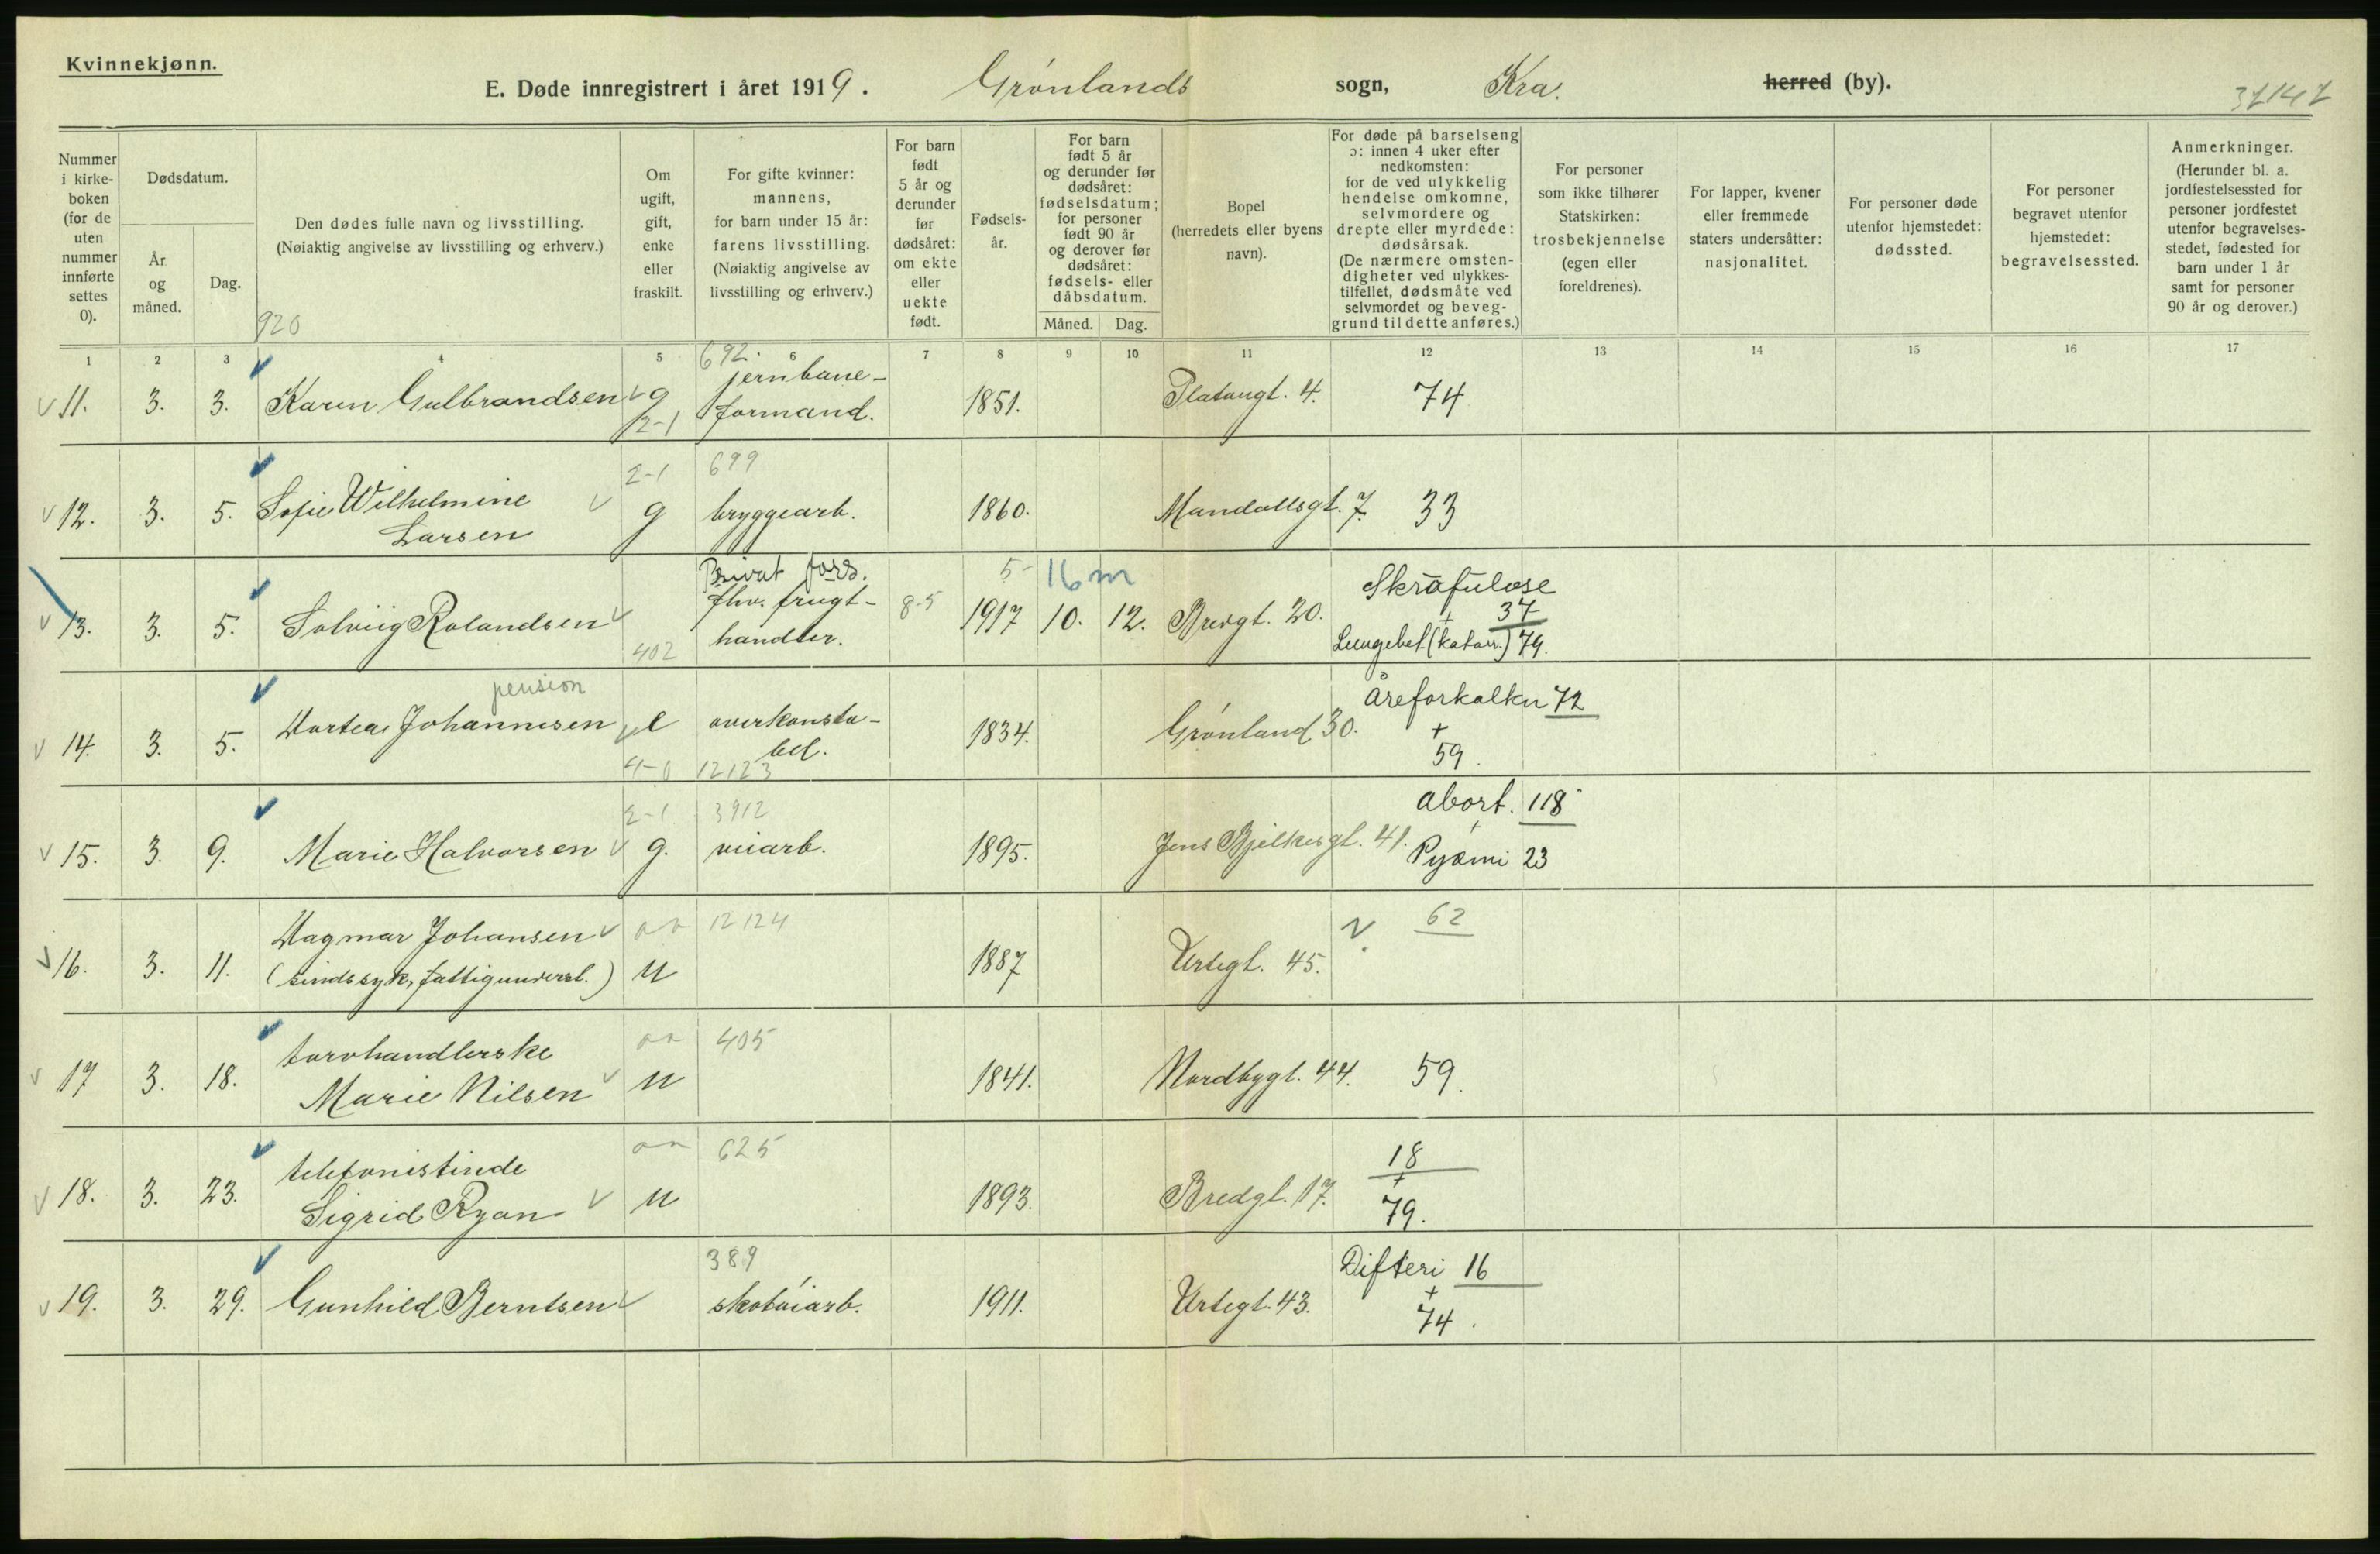 Kvinnekjønn.
E. Døde innregistrert i året 1919. Grønlands sogn, Kra. herred (by).
Nummer i kirke-boken (for de uten nummer innførte settes 0).
Dødsdatum.
År og måned.
Dag.
Den dødes fulle navn og livsstilling.
(Nøiaktig angivelse av livsstilling og erhverv.)
920
Om ugift, gift, enke eller fraskilt.
For gifte kvinner: mannens, for barn under 15 år: farens livsstilling. (Nøiaktig angivelse av livsstilling og erhverv.)
For barn født 5 år og derunder før dødsåret: om ekte eller uekte født.
Fødsels-år.
For barn født 5 år og derunder før dødsåret: fødselsdatum; for personer født 90 år og derover før dødsåret: fødsels- eller dåbsdatum.
Måned. Dag.
Bopel (herredets eller byens navn).
For døde på barselseng ɔ: innen 4 uker efter nedkomsten: for de ved ulykkelig hendelse omkomne, selvmordere og drepte eller myrdede: dødsårsak. (De nærmere omsten-digheter ved ulykkes-tilfellet, dødsmåte ved selvmordet og beveg-grund til dette anføres.)
For personer som ikke tilhører Statskirken: trosbekjennelse (egen eller foreldrenes).
For lapper, kvener eller fremmede staters undersåtter: nasjonalitet.
For personer døde utenfor hjemstedet: dødssted.
For personer begravet utenfor hjemstedet: begravelsessted.
Anmerkninger. (Herunder bl. a. jordfestelsessted for personer jordfestet utenfor begravelses-stedet, fødested for barn under 1 år samt for personer 90 år og derover.)
1 2 3 4 5 6 7 8 9 10 11 12 13 14 15 16 17
692.
11. 3. 3. Karen Gulbrandsen g jernbane-formand. 1851. Platougt. 4. 74
2-1
2-1 699
12. 3. 5. Sofie Wilhelmine Larsen g bryggearb. 1860. Mandallsgt. 7. 33
Privat fors. 5- 16 m
13. 3. 5. Solveig Rolandsen fhv. frugt-handler. 8-5 1917 10. 12. Bredgt. 20. Skrofulose 37 + Lungebet. (katarr.) 79.
402
pension
14. 3. 5. Dortea Johannesen overkonsta-bel. 1834. Grønland 30. Åreforkalkn 72 + 59.
4-0 12123
2-1 3912
15. 3. 9. Marie Halvorsen g. veiarb. 1895. Jens Bjelkesgt. 41. abort. 118 + Pyæmi 23
12124
16. 3. 11. Dagmar Johansen (sindssyk, fattigunderst.) u 1887 Urtegt. 45. 62
405
17 3. 18. torvhandlerske Marie Nilsen u 1841. Nordbygt. 44. 59.
625
18. 3. 23. telefonistinde Sigrid Ryan u 1893. Bredgt. 17. 18 + 79.
389
19. 3. 29. Gunhild Berntsen skotøiarb. 1911. Urtegt. 43. Difteri 16 + 74.